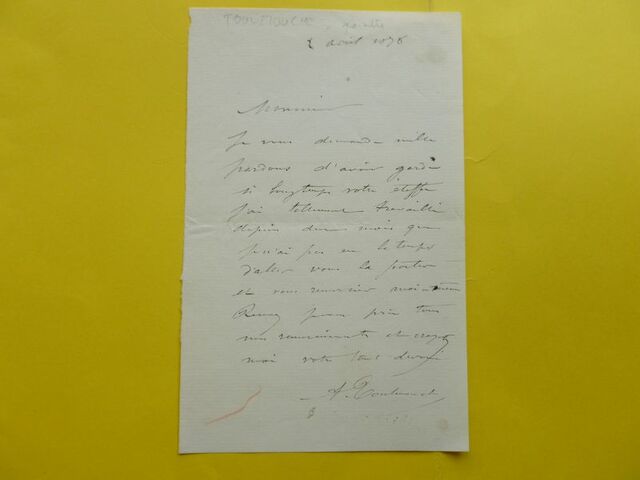 TOULMOUCHE
2 avril 1876
Monsieur
Je vous demande mille
pardons d'avoir gardé
si longtemps votre étoffe
j'ai tellement travaillé
depuis deux mois que
je n'ai pas eu le temps
d'aller vous la porter
et vous remercier
Recevez je vous prie tous
mes remerciements et croyez
moi votre tout dévoué
A. Toulmouche